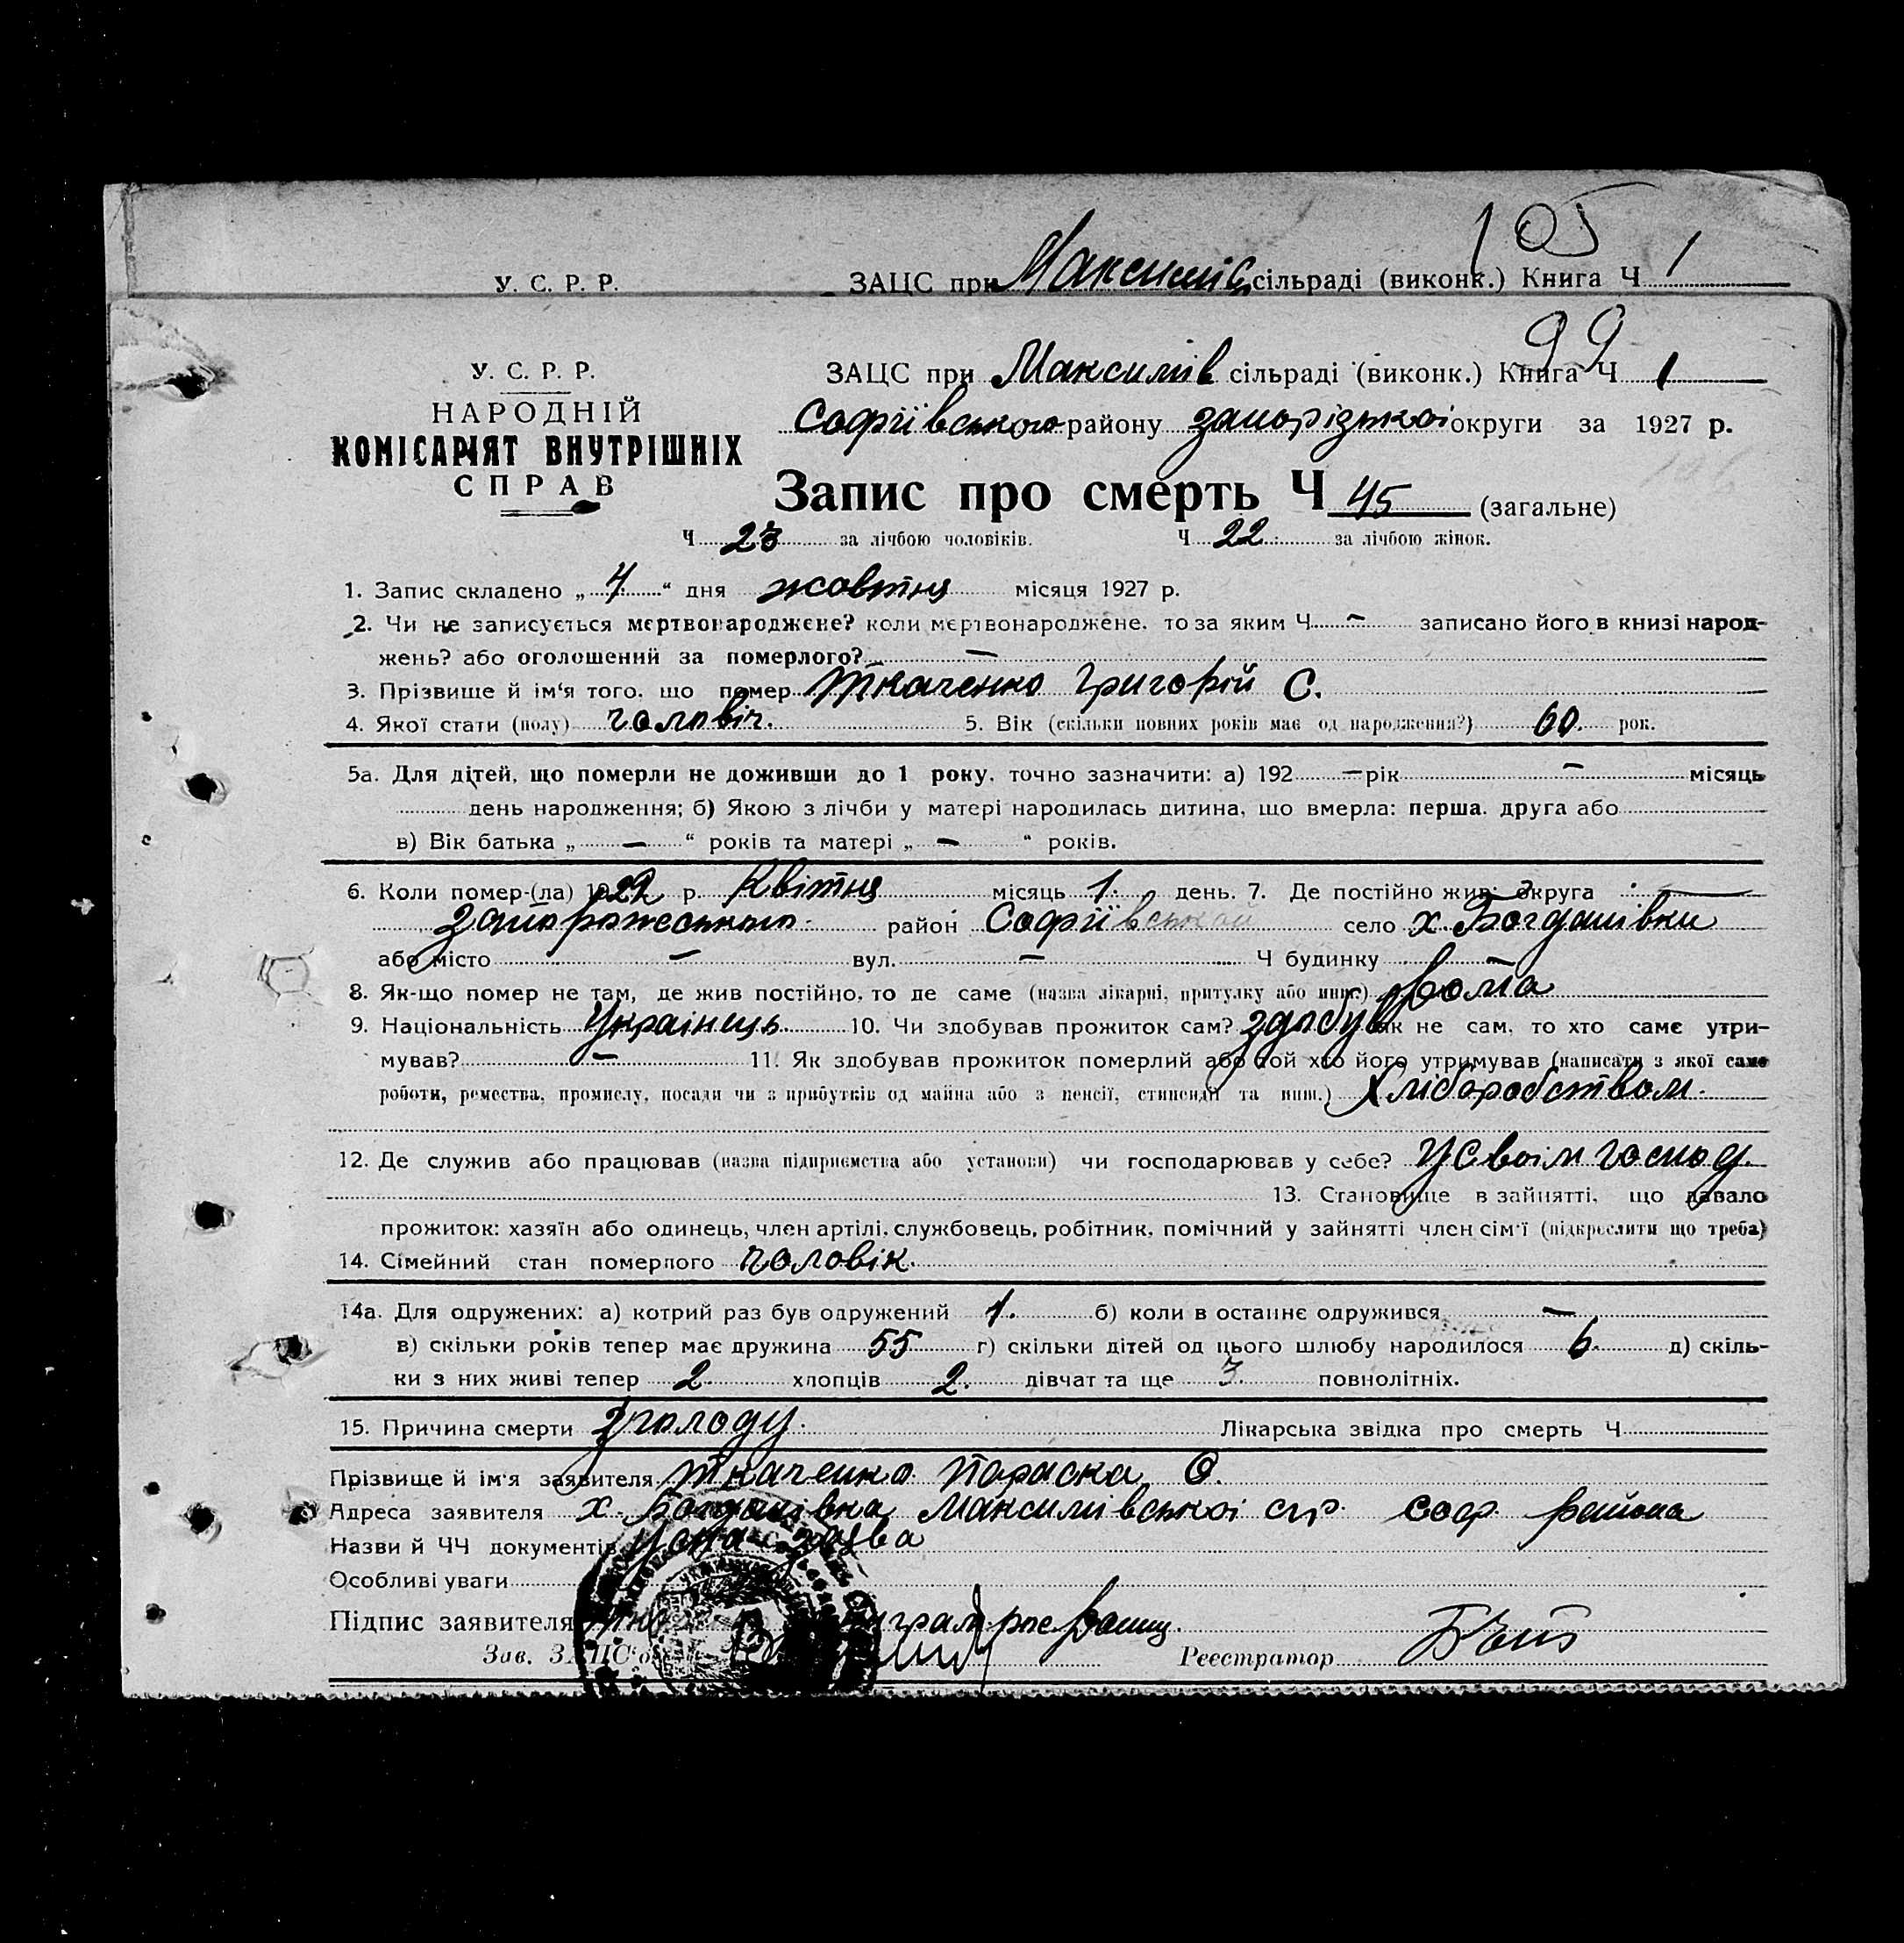 105
У. С. Р. Р. ЗАЦС при Максимів сільраді (виконк.) Книга Ч 1
99
У. С. Р. Р. ЗАЦС при Максимів сільраді (виконк.) Книга Ч 1
НАРОДНІЙ Софіївського району запорізької округи за 1927 р.
КОМІСАРІЯТ ВНУТРІШНІХ
СПРАВ
Запис про смерть Ч 45 (загальне)
Ч 23 за лічбою чоловіків. Ч 22 за лічбою жінок.
1. Запис складено „ 4 “ дня жовтня місяця 1927 р.
2. Чи не записується мертвонароджене? коли мертвонароджене, то за яким Ч – записано його в книзі народ-
жень? або оголошений за померлого? –
3. Прізвище й ім'я того, що помер Ткаченко Григорій С.
4. Якої стати (полу) чоловіч. 5. Вік (скільки повних років має од народження?) 60. рок.
5а. Для дітей, що померли не доживши до 1 року, точно зазначити: а) 192 – рік – місяць
день народження; б) Якою з лічби у матері народилась дитина, що вмерла: перша, друга або
в) Вік батька „ – “ років та матері „ – “ років.
6. Коли помер-(ла) 192 р. Квітня місяць 1. день. 7. Де постійно жив: округа
район Софіївський село х. Богданівки
або місто – вул. – Ч будинку –
8. Як-що помер не там, де жив постійно, то де саме (назва лікарні, притулку або инш.) дома
9. Національність Українець 10. Чи здобував прожиток сам? здобув як не сам, то хто саме утри-
мував? – 11. Як здобував прожиток померлий або той хто його утримував (написати з якої саме
роботи, ремества, промислу, посади чи з прибутків од майна або з пенсії, стипендії та инш.) Хліборобством.
12. Де служив або працював (назва підприємства або установи) чи господарював у себе? У своїм господ.
13. Становище в зайнятті, що давало
прожиток: хазяїн або одинець, член артілі, службовець, робітник, помічний у зайнятті член сім'ї (підкреслити що треба)
14. Сімейний стан померлого чоловік.
14а. Для одружених: а) котрий раз був одружений 1. б) коли в останнє одружився –
в) скільки років тепер має дружина 55 г) скільки дітей од цього шлюбу народилося 6. д) скіль-
ки з них живі тепер 2. хлопців 2. дівчат та ще 3. повнолітніх.
15. Причина смерти з голоду. Лікарська звідка про смерть Ч
Прізвище й ім'я заявителя Ткаченко Параска О.
Адреса заявителя х. Богданівка Максимівської с/р. соф района
Назви й ЧЧ документів Усна заява
Особливі уваги
Підпис заявителя
Зав. ЗАЦС'ом Реєстратор